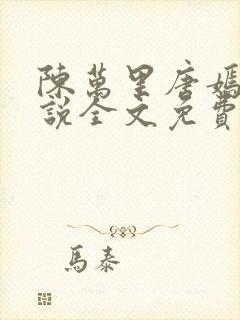 陳萬里唐嫣
說全文免費
馬泰